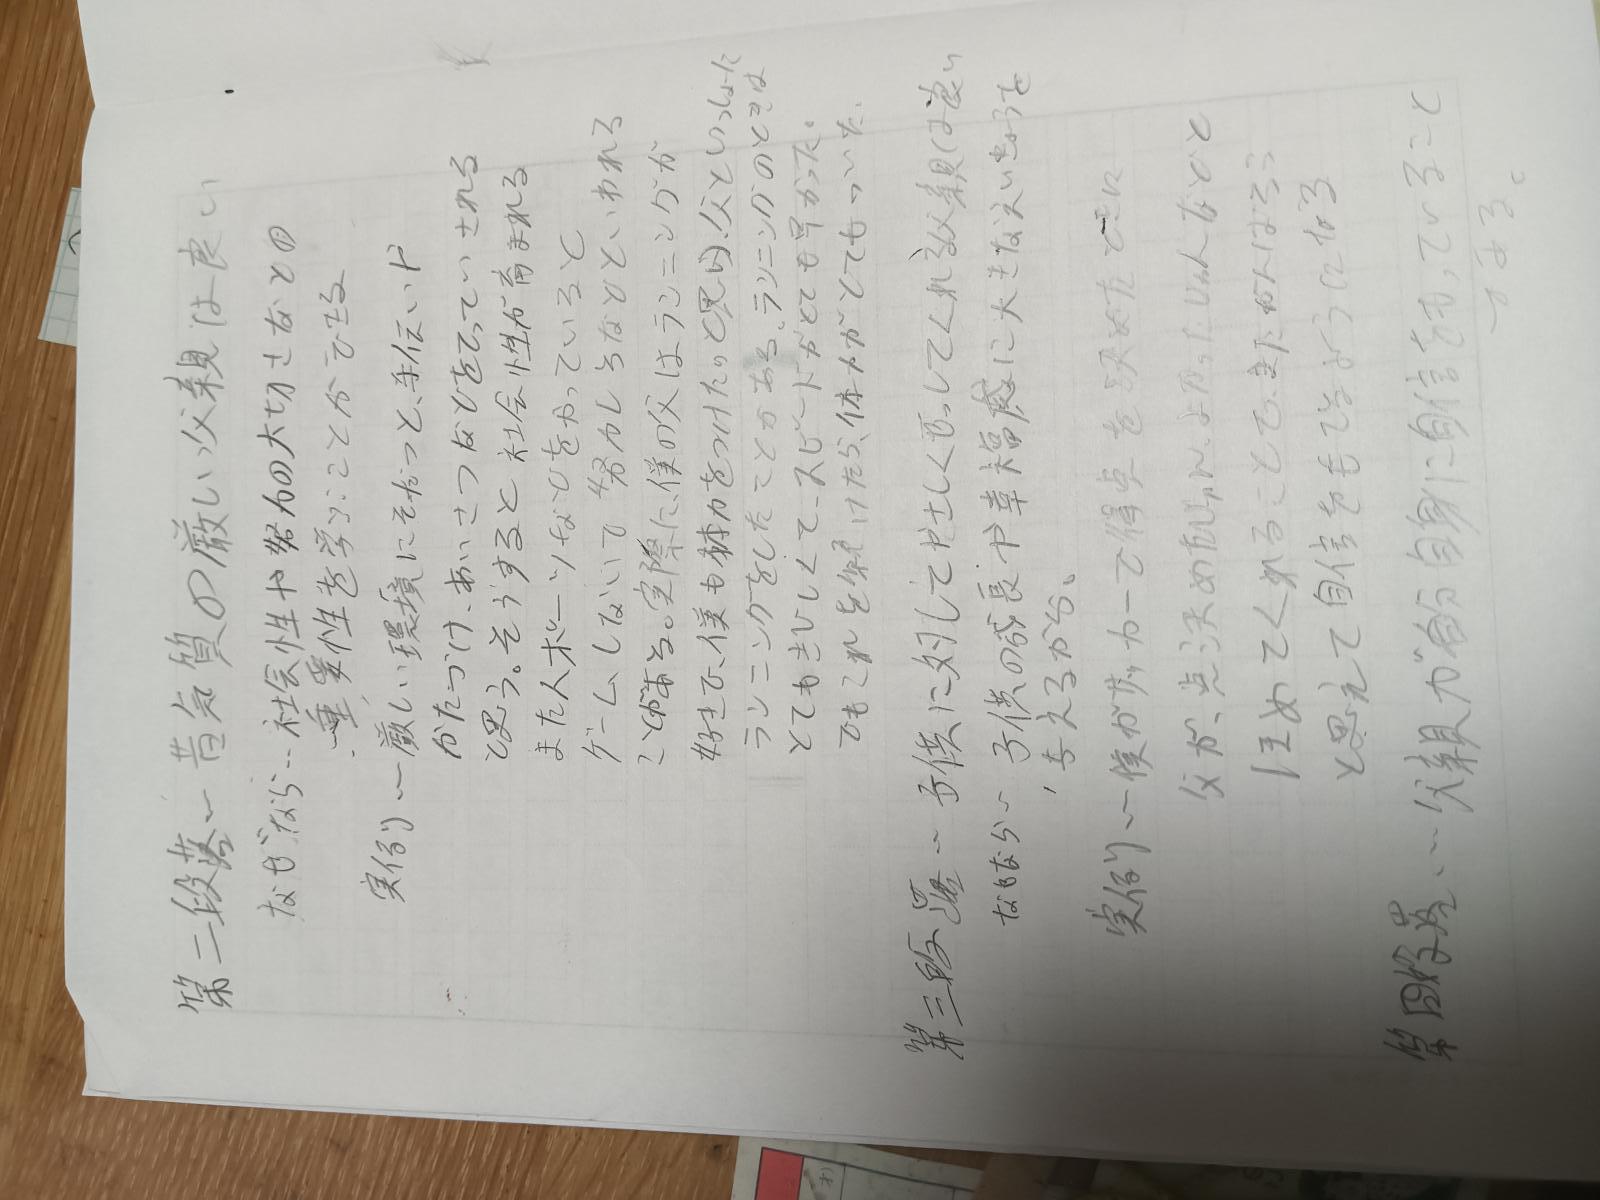 第二段落〜昔気質の厳しい父親は良い
なぜなら…社会性や努力の大切さなどの
重要性を学ぶことができる
実例〜厳しい環境にそだっと、手伝いや
かたづけ、あいさつなどをてっていされる
と思う。そうすると社会性が育まれる
また人ポーツなどをやっていると
ゲームしないで努力しろなどといわれる
ことがある。実際に、僕の父はランニングが
好きで、僕も体力をつけたいと思い、父といっしょに
ランニングをしたことがある。ランニングのときは
とてもきびしくて、スピードがとても早かった。
でもこれを続けたら、体力がとてもついた。
第三段落〜子供に対してやさしく接してくれる父親は良い
なぜなら〜子供の成長や幸福感に大きなえいきょうを
与えるから、
実例〜僕がサッカーで得点を決めたときに
父が、点決めたじゃん、よかったじゃんなどと
ほめてくれることで、またがんばろう
と思えて自信をもてるようになる
第四段落〜父親が自分自身に自信をもっていること
である。